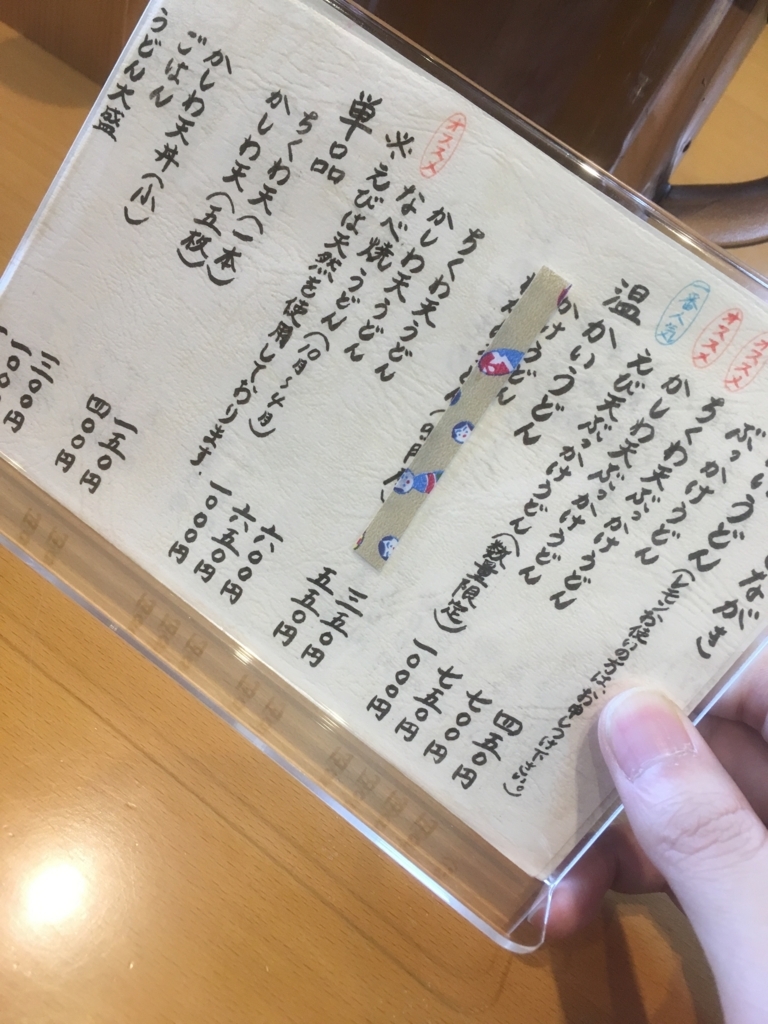 ながき
ぶっかけうどん（レモンお使いの方は、お申しつけ下さい。） 四五〇円
オススメ ちくわ天ぶっかけうどん 七〇〇円
オススメ かしわ天ぶっかけうどん 七五〇円
一番人気 えび天ぶっかけうどん（数量限定） 一〇〇〇円
温
かけうどん 三五〇円
五五〇円
ちくわ天うどん 六〇〇円
かしわ天うどん 六五〇円
オススメ なべ焼うどん（10月〜4月） 一〇〇〇円
※えびは天然を使用しております。
単品
ちくわ天（一本） 一五〇円
かしわ天（五枚） 四〇〇円
かしわ天丼（小） 三〇〇円
ごはん 一〇〇円
うどん大盛